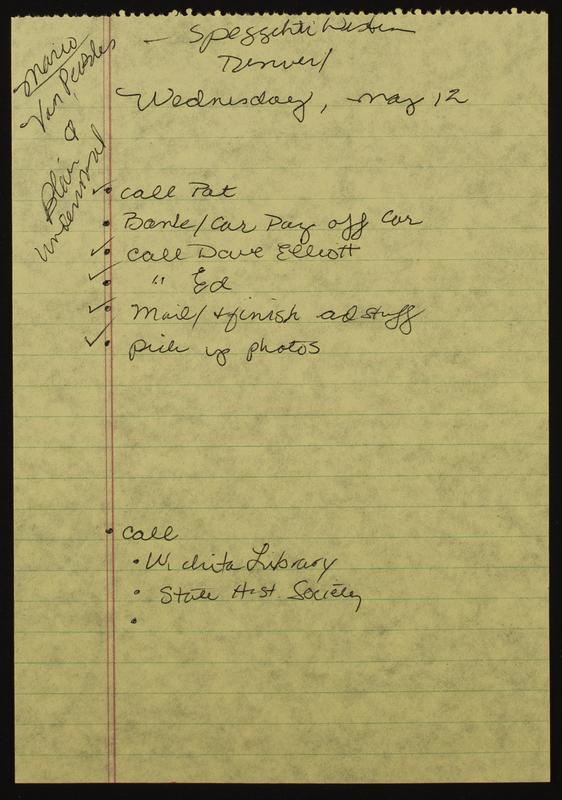 Mario
Van Peebles
&
Blair
Underwood
— Speggehti Western
Denver/
Wednesday, May 12
✓• call Pat
• Bank/Car Pay off car
✓• call Dave Elliott
✓• " Ed
✓• Mail/ finish ad stuff
✓• pick up photos
• call
• Wichita Library
• State Hist Society
•